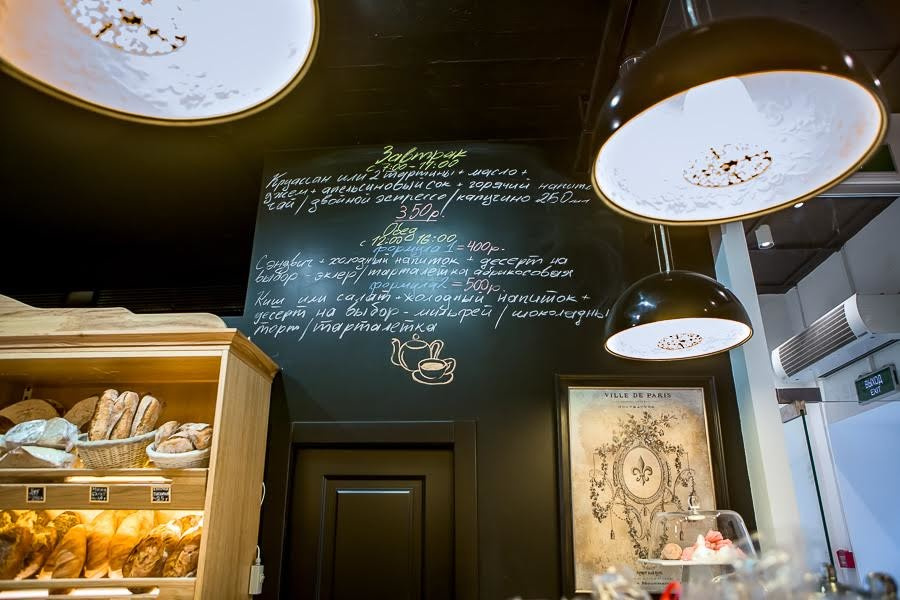 Завтрак
Круассан или 2 тартины + масло +
джем + апельсиновый сок + горячий напиток
чай / двойной эспрессо / капучино 250 мл
350р.
Обед
с 12:00 - 16:00
формула 1 = 400р.
Сэндвич + холодный напиток + десерт на
выбор - эклер / тарталетка абрикосовая
формула 2 = 500р.
Киш или салат + холодный напиток +
десерт на выбор - мильфей / шоколадный
торт / тарталетка
VILLE DE PARIS
ВЫХОД
EXIT